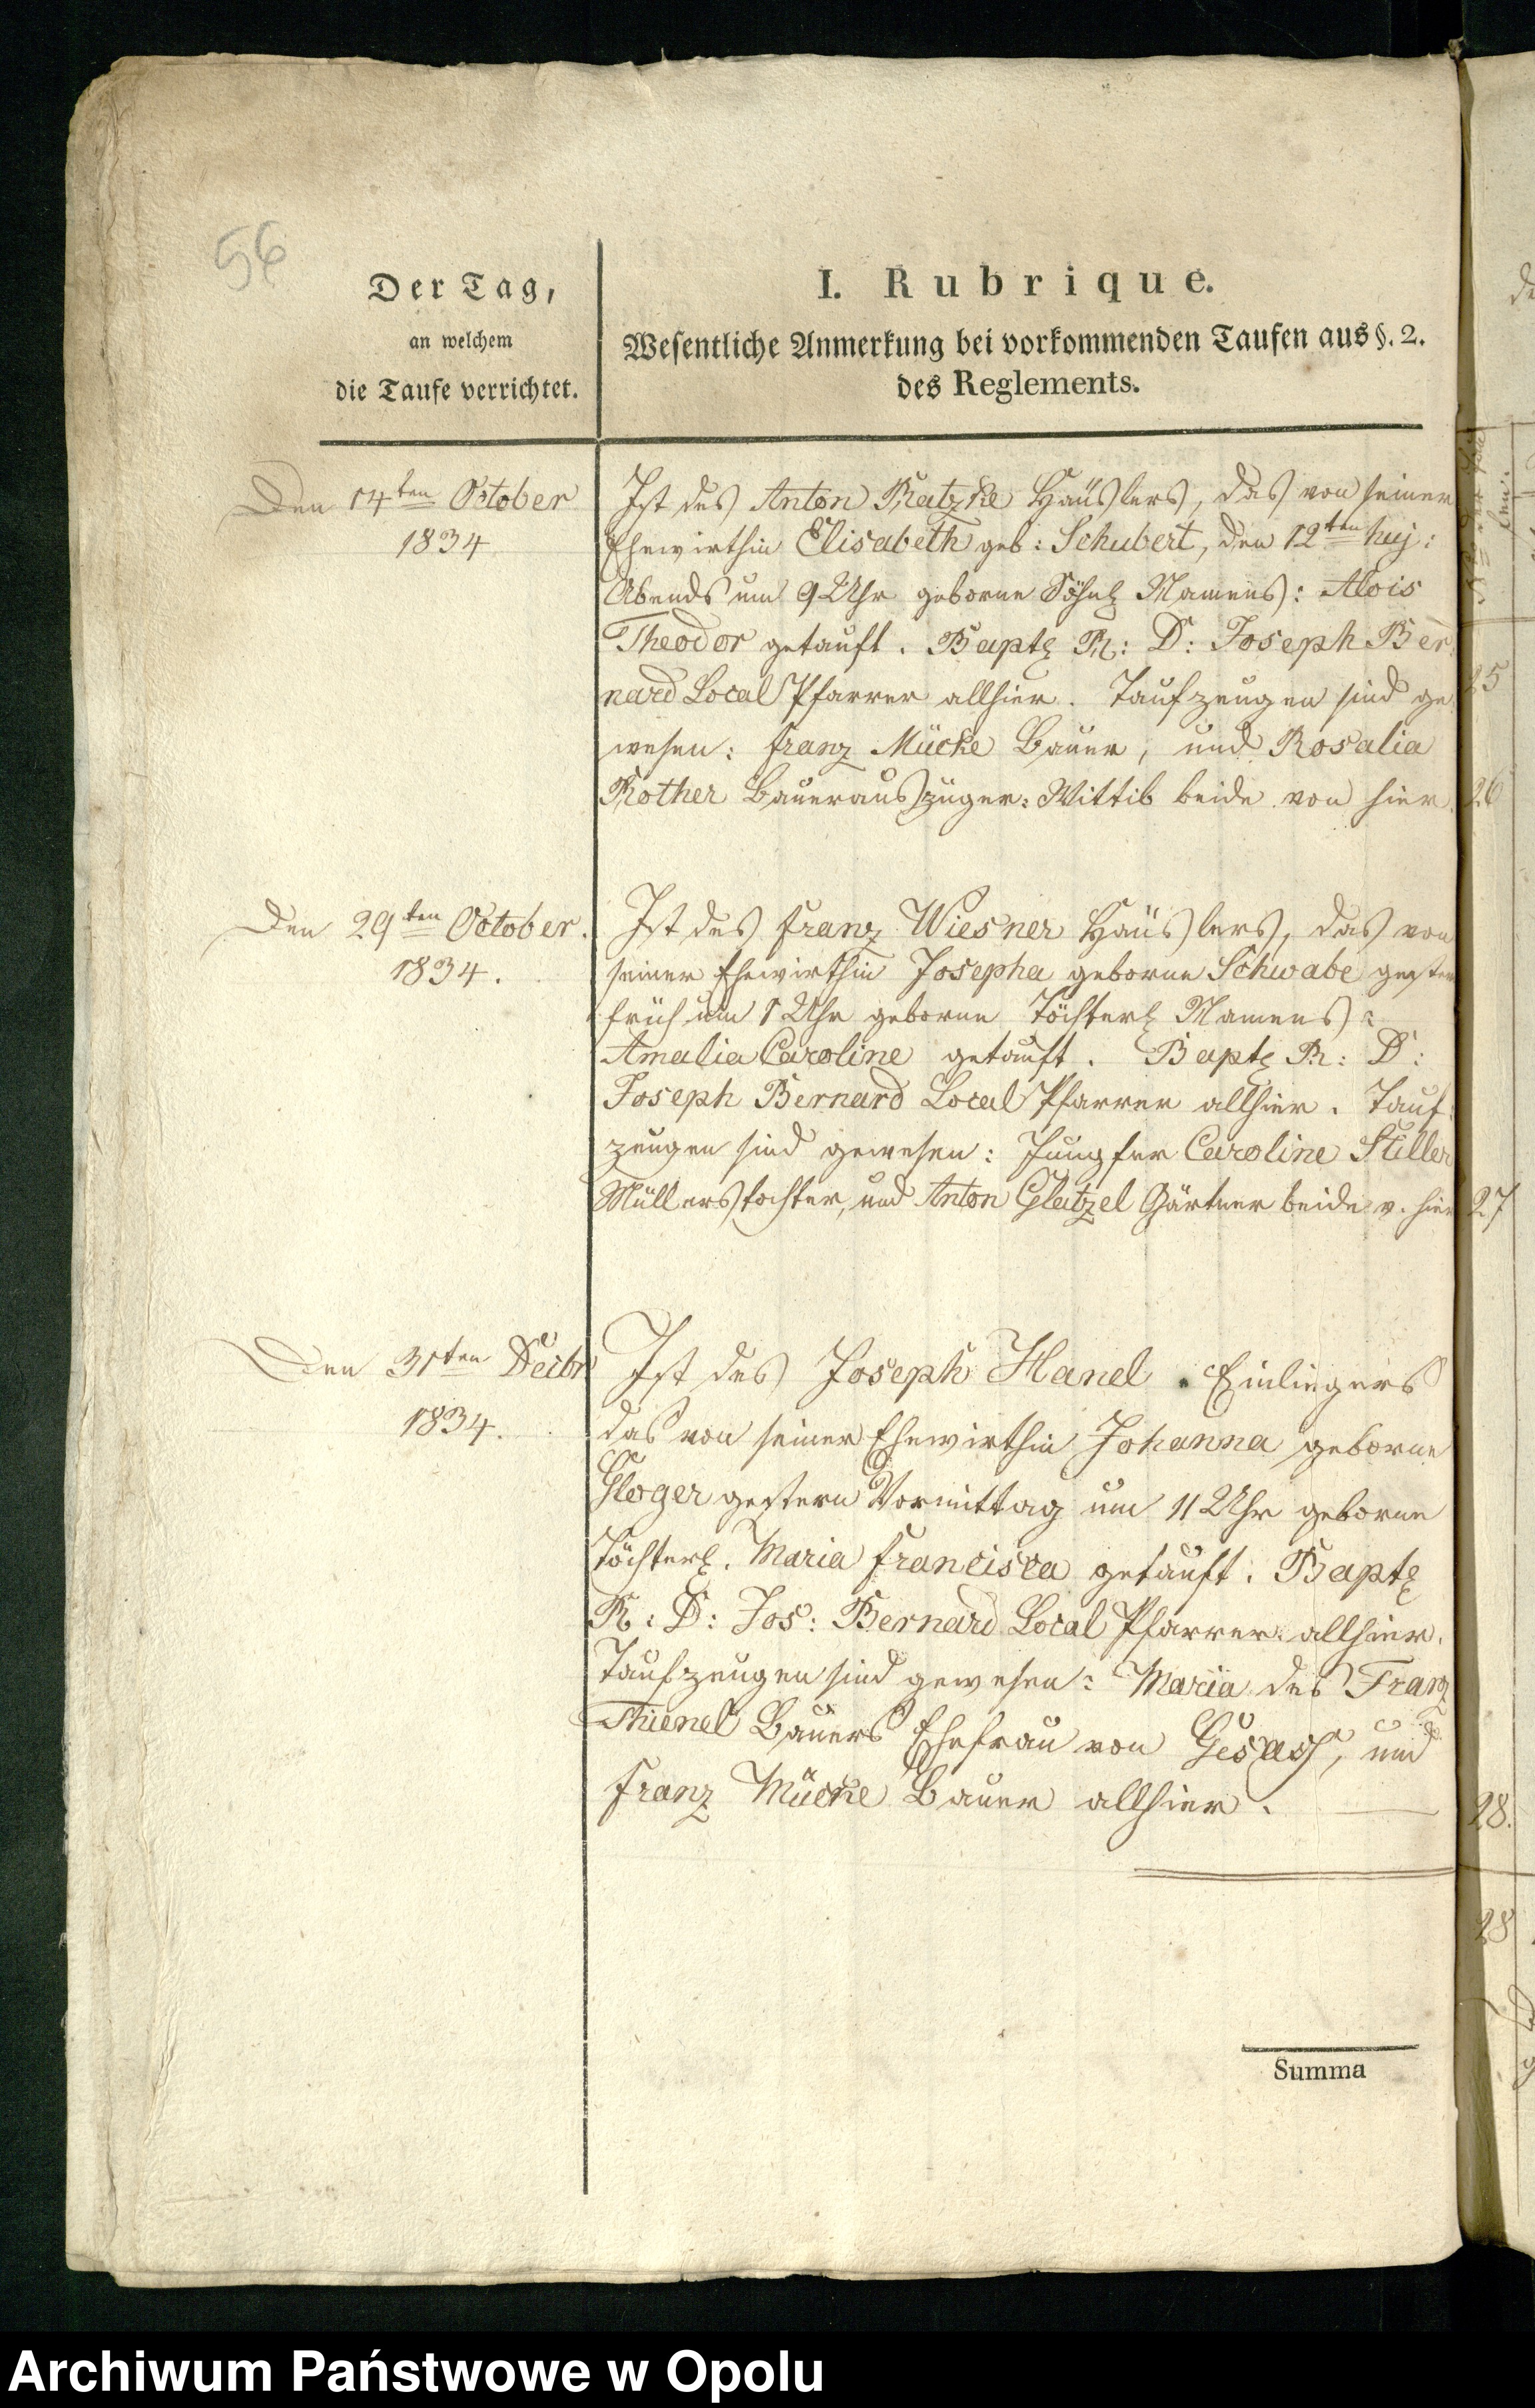 56
Der Tag,
an welchem
die Taufe verrichtet.
I. Rubrique.
Wesentliche Anmerkung bei vorkommenden Taufen aus §. 2.
des Reglements.
Den 14ten October
1834
Ist des Anton Ratzke Häuslers, das von seiner
Ehewirthin Elisabeth geb: Schubert, den 12ten huj:
Abends um 9 Uhr geborne Söhnl Namens: Alois
Theodor getauft. Bapt R: D: Joseph Ber
nard Local Pfarrer allhier. Taufzeugen sind ge
wesen: Franz Mücke Bauer, und Rosalia
Rother Bauerauszüger: Wittib beide von hier.
25
26
Den 29ten October.
1834.
Ist des Franz Wiesner Häuslers, das von
seiner Ehewirthin Josepha geborne Schwabe gestern
früh um 1 Uhr geborne Töchterl Namens:
Amalia Caroline getauft. Bapt R: D:
Joseph Bernard Local Pfarrer allhier. Tauf
zeugen sind gewesen: Jungfer Caroline Stiller
Müllerstochter, und Anton Glatzel Gärtner beide v. hier
27
Den 31ten Decbr
1834.
Ist des Joseph Hanel Einliegers
das von seiner Ehewirthin Johanna geborne
Gloger gestern Vormittag um 11 Uhr geborne
Töchterl. Maria Francisca getauft. Bapt
R: D: Jos: Bernard Local Pfarrer allhier.
Taufzeugen sind gewesen: Maria des Franz
Thienel Bauers Ehefrau von Gesäss, und
Franz Mücke Bauer allhier.
28.
28
Summa
Archiwum Państwowe w Opolu